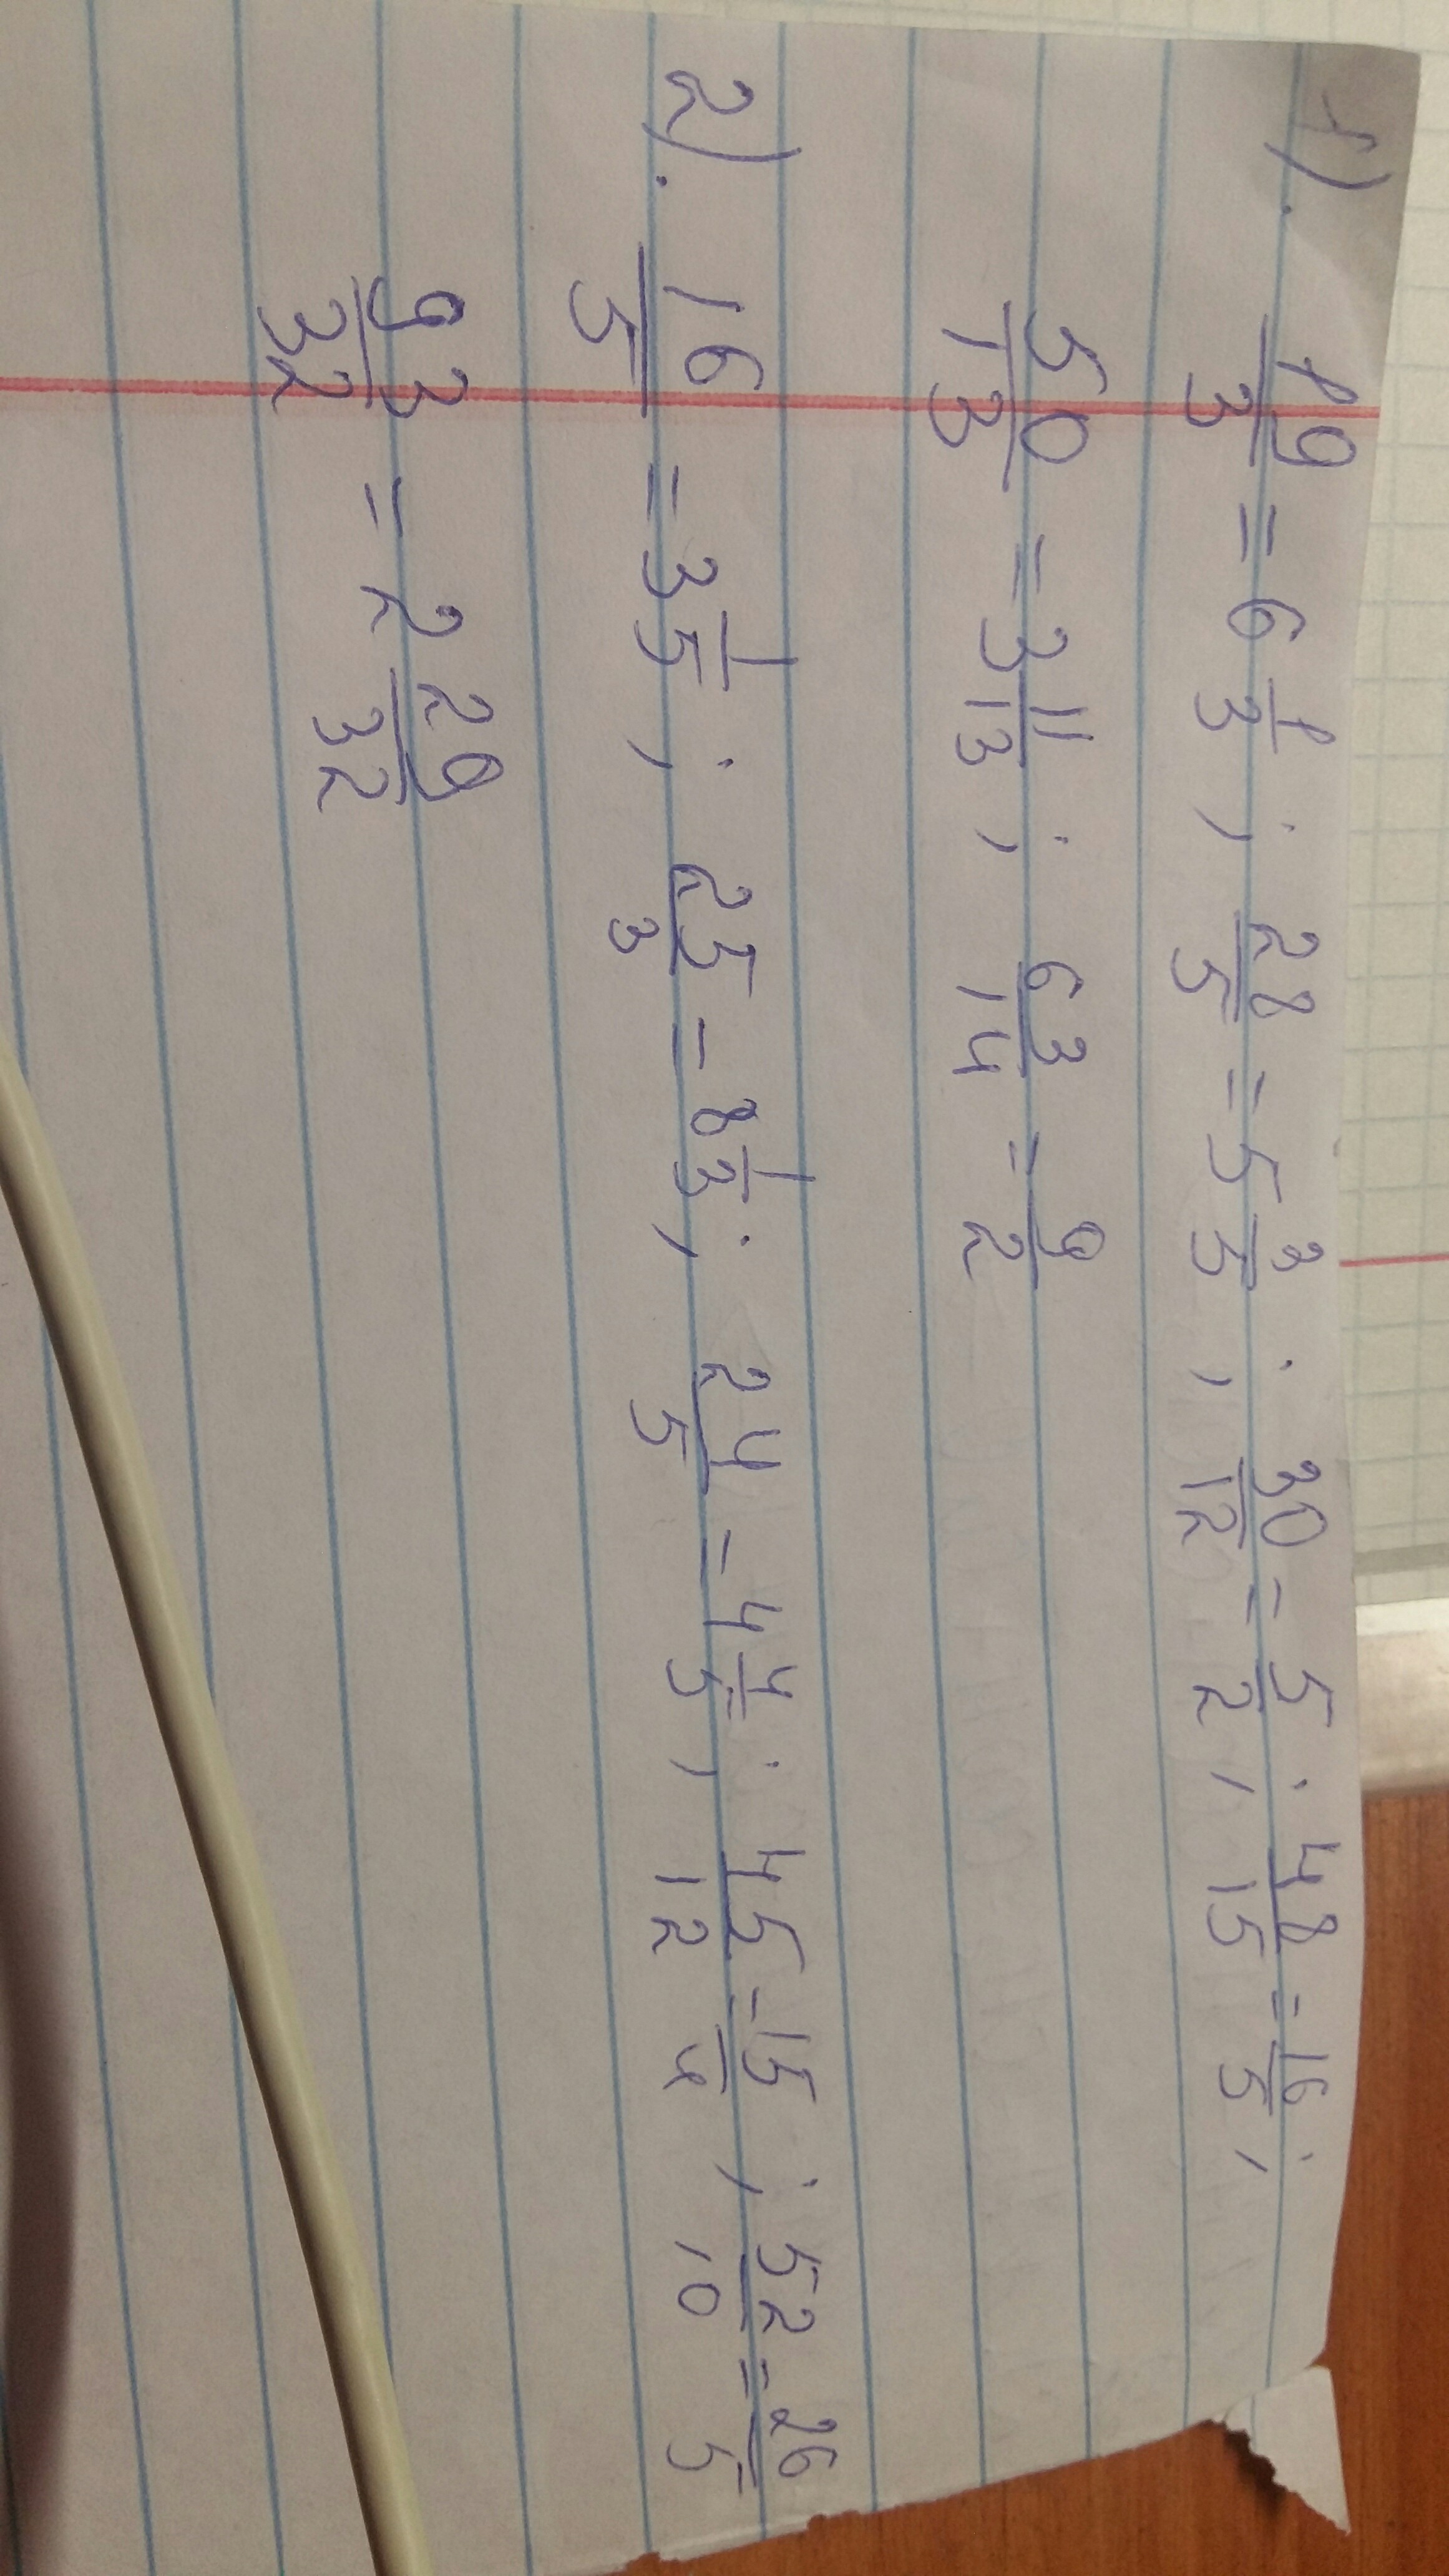 1). 19/3 = 6 1/3 ; 28/5 = 5 3/5 ; 30/12 = 5/2 ; 48/15 = 16/5 ;
50/13 = 3 11/13 ; 63/14 = 9/2
2). 16/5 = 3 1/5 ; 25/3 = 8 1/3 ; 24/5 = 4 4/5 ; 45/12 = 15/4 ; 52/10 = 26/5
93/32 = 2 29/32